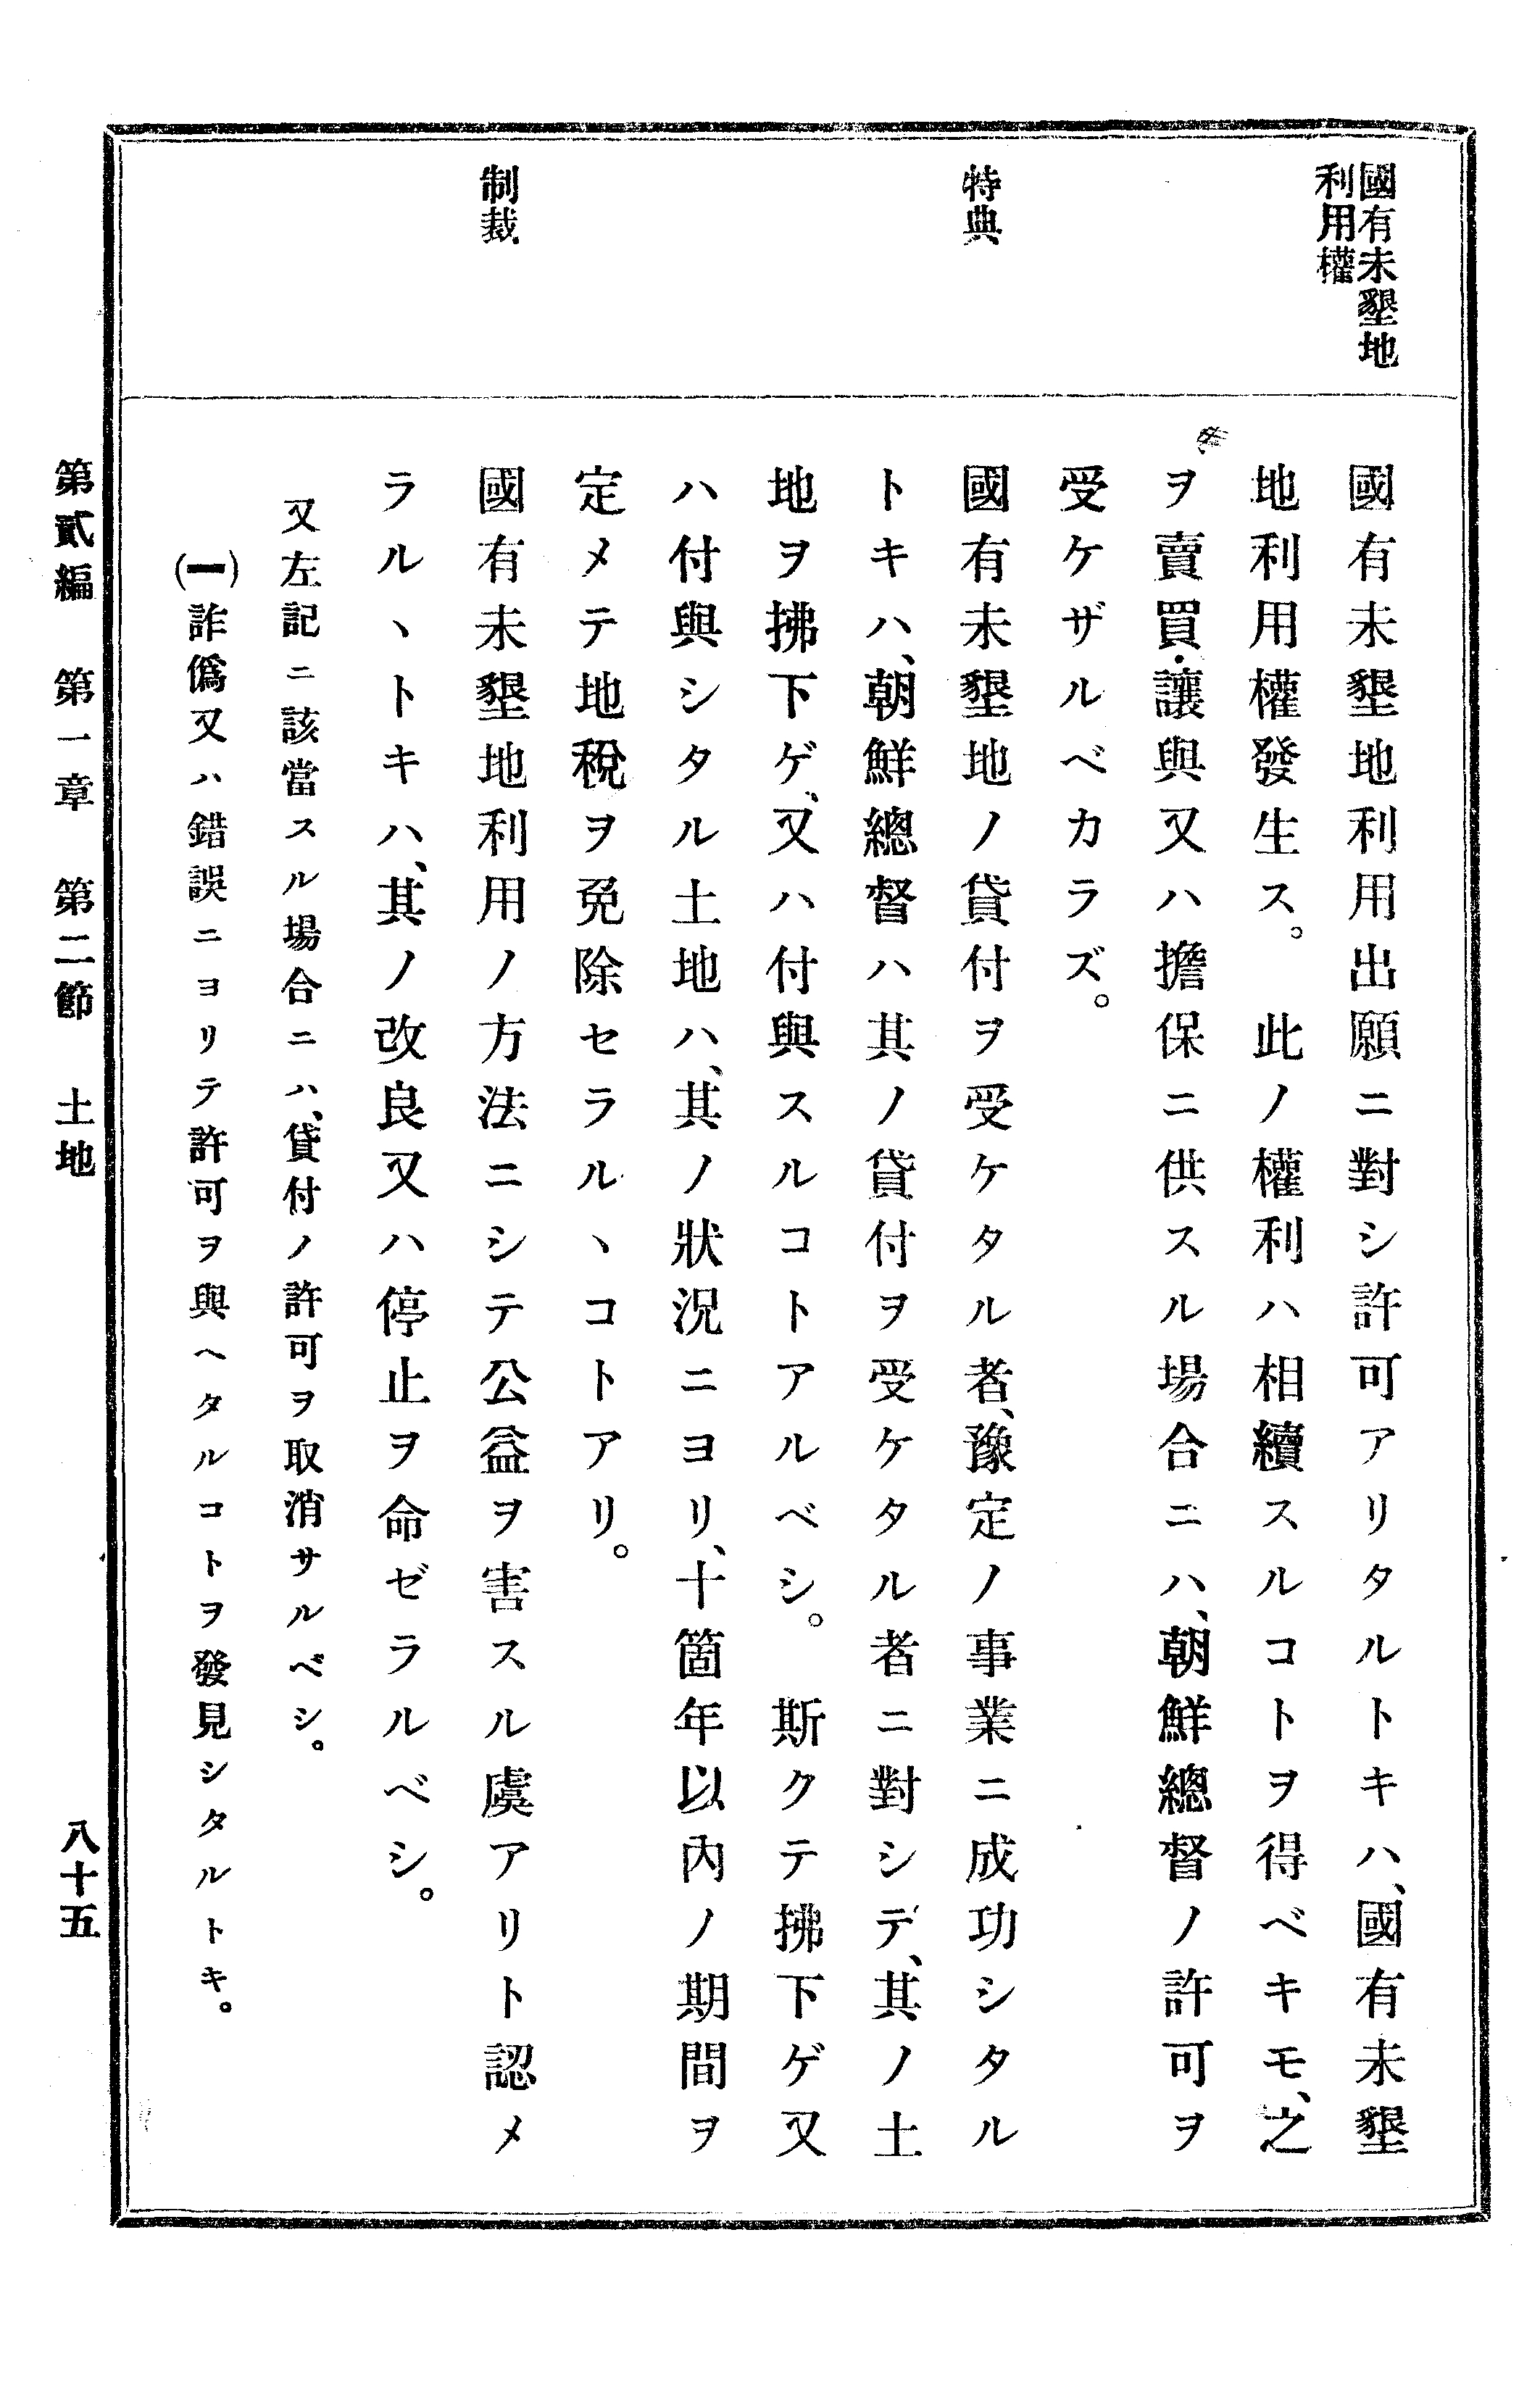 國有未墾地
利用權
特典
制裁
國有未墾地利用出願ニ對シ許可アリタルトキハ、國有未墾
地利用權發生ス。 此ノ權利ハ相續スルコトヲ得ベキモ、之
ヲ賣買・讓與又ハ擔保ニ供スル場合ニハ、朝鮮總督ノ許可ヲ
受ケザルベカラズ。
國有未墾地ノ貸付ヲ受ケタル者、豫定ノ事業ニ成功シタル
トキハ、朝鮮總督ハ其ノ貸付ヲ受ケタル者ニ對シテ、其ノ土
地ヲ拂下ゲ、又ハ付與スルコトアルベシ。 斯クテ拂下ゲ又
ハ付與シタル土地ハ、其ノ狀況ニヨリ、十箇年以內ノ期間ヲ
定メテ地稅ヲ免除セラルヽコトアリ。
國有未墾地利用ノ方法ニシテ公益ヲ害スル虞アリト認メ
ラルヽトキハ、其ノ改良又ハ停止ヲ命ゼラルベシ。
又左記ニ該當スル場合ニハ、貸付ノ許可ヲ取消サルベシ。
(一)詐僞又ハ錯誤ニヨリテ許可ヲ與ヘタルコトヲ發見シタルトキ。
第貳編 第一章 第二節 土地 八十五